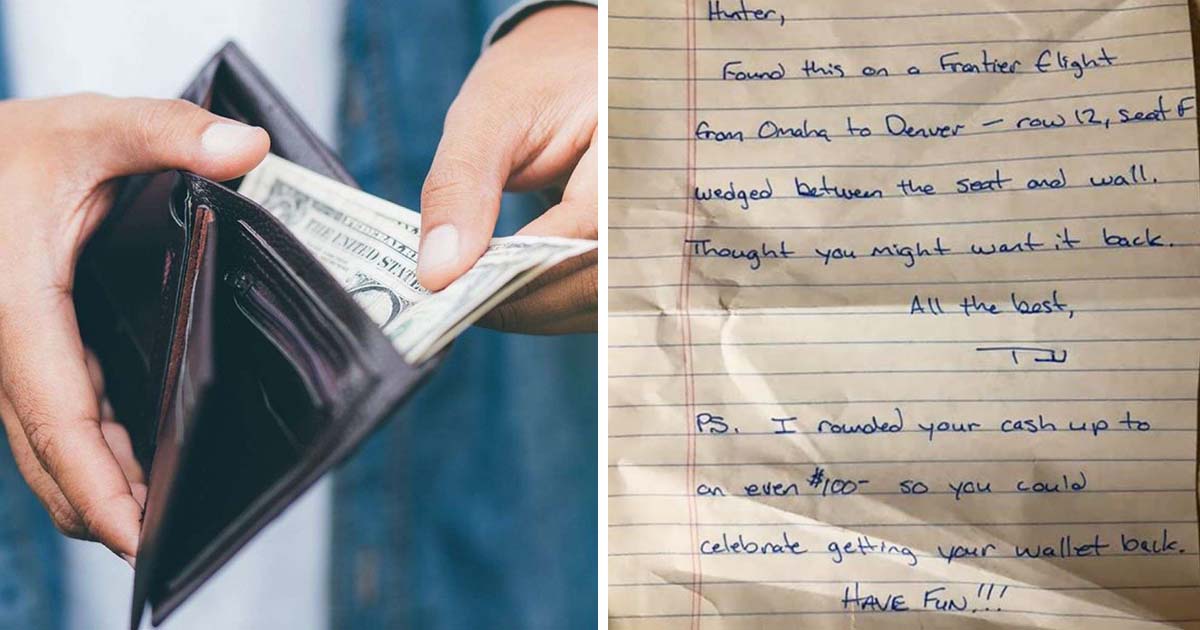 THE UNITED STATES
Hunter,
Found this on a Frontier flight
from Omaha to Denver – row 12, seat F
wedged between the seat and wall.
Thought you might want it back.
All the best,
PS. I rounded your cash up to
an even $100- so you could
celebrate getting your wallet back.
HAVE FUN!!!